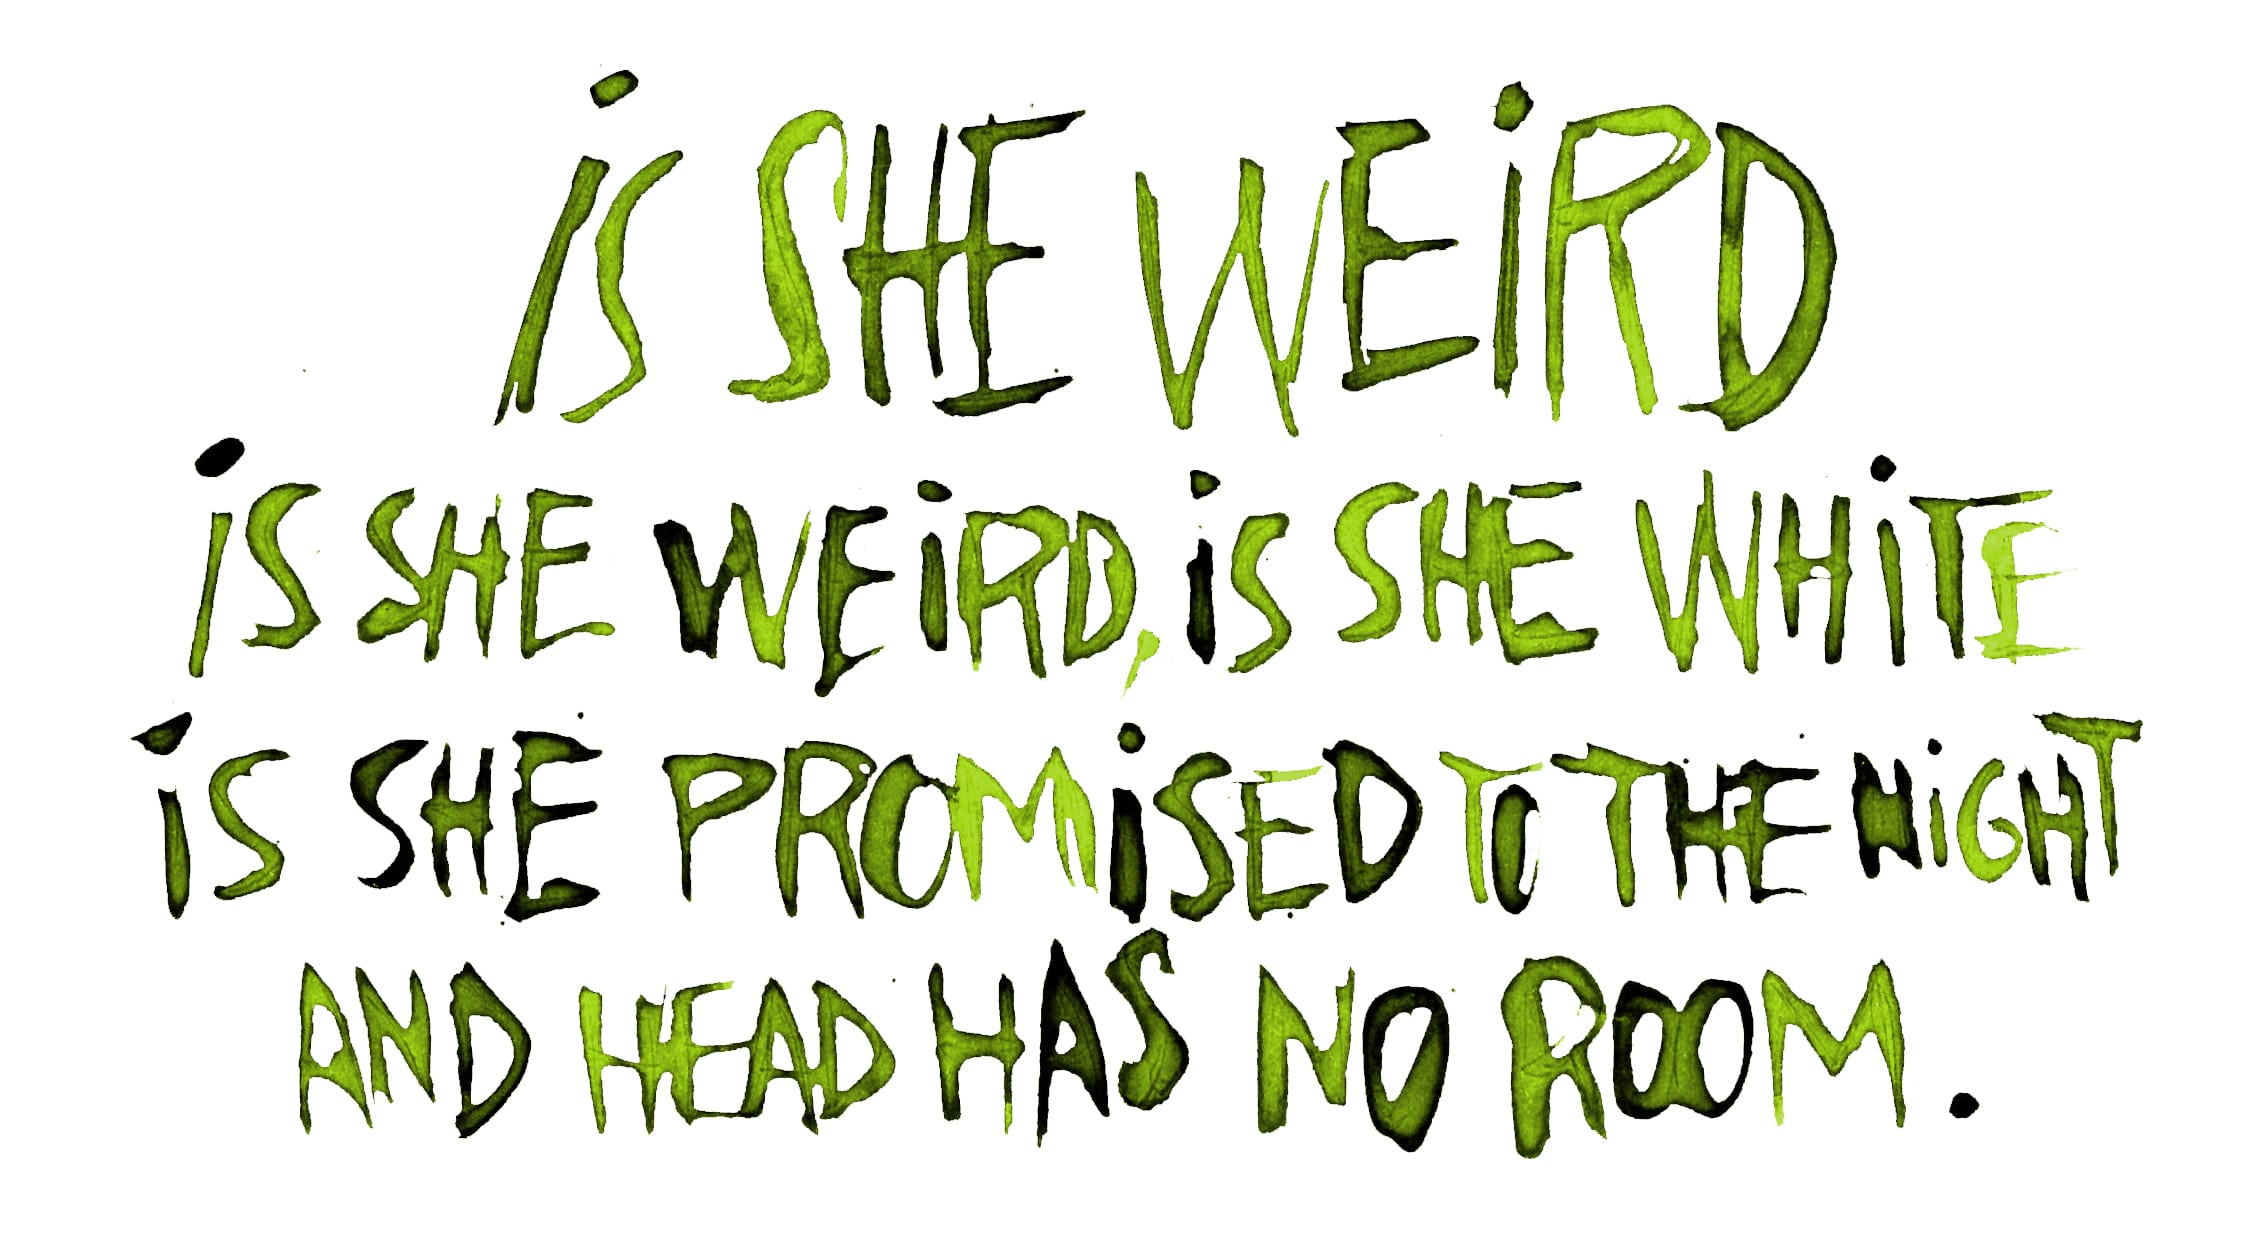 iS SHE WEiRD
iS SHE WEiRD, iS SHE WHiTE
iS SHE PROMiSED TO THE NiGHT
AND HEAD HAS NO ROOM.